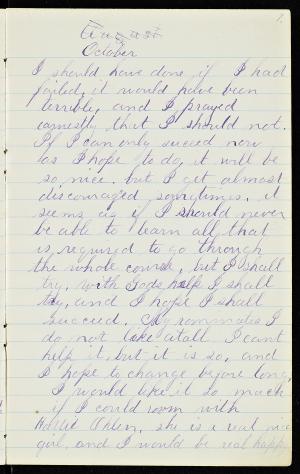 1.
August
October
I should have done if I had
failed, it would have been
terrible, and I prayed
earnestly that I should not.
If I can only succeed now
as I hope to do, it will be
so nice. but I get almost
discouraged sometimes. it
seems as if I should never
be able to learn all that
is required to go through
the whole course, but I shall
try, with Gods help I shall
try, and I hope I shall
succeed. My roommates I
do not like atall. I cant
help it, but it is so, and
I hope to change before long,
I would like it so much
if I could room with
Hattie she is a real nice
girl, and I would be real happy